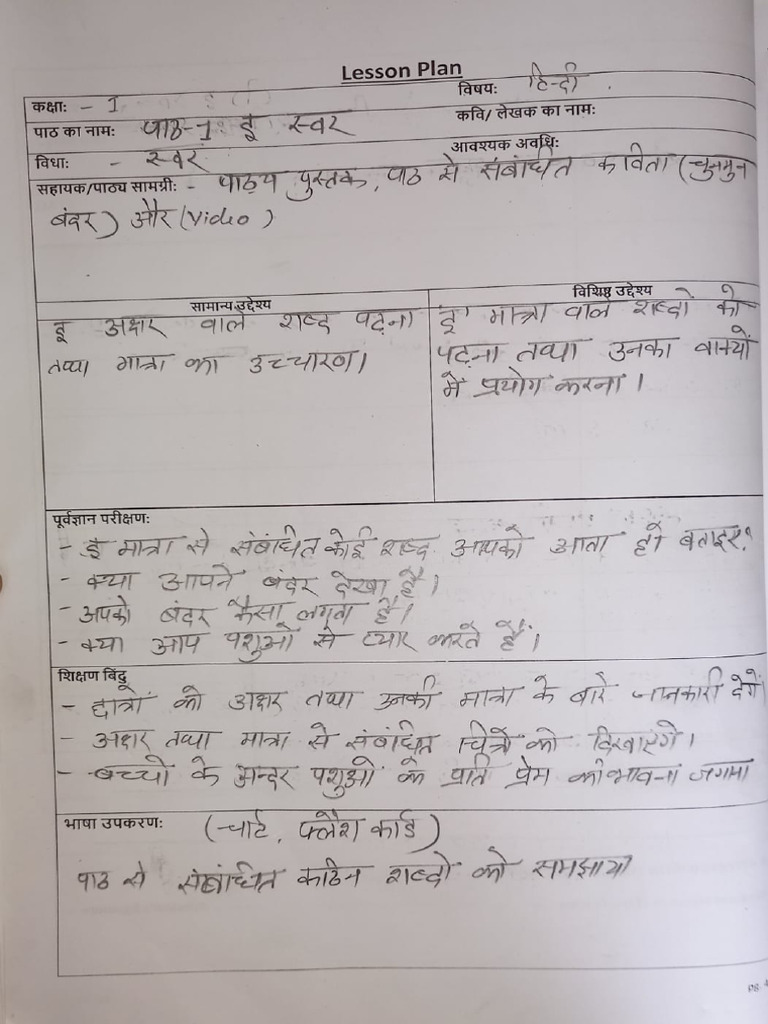 Lesson Plan
कक्षाः - I विषयः हिन्दी
पाठ का नामः पाठ-1 इ स्वर कवि/ लेखक का नामः
विधाः - स्वर आवश्यक अवधिः
सहायक/पाठ्य सामग्रीः - पाठ्य पुस्तक, पाठ से संबंधित कविता (चुनमुन
बंदर) और (Video)
सामान्य उद्देश्य
इ अक्षर वाले शब्द पढ़ना
तथा मात्रा का उच्चारण।
विशिष्ठ उद्देश्य
इ मात्रा वाले शब्दों को
पढ़ना तथा उनका वाक्यों
में प्रयोग करना।
पूर्वज्ञान परीक्षणः
- इ मात्रा से संबंधित कोई शब्द आपको आता हो बताइए?
- क्या आपने बंदर देखा है।
- अपको बंदर कैसा लगता है।
- क्या आप पशुओं से प्यार करते हैं।
शिक्षण बिंदु
- छात्रों को अक्षर तथा उनकी मात्रा के बारे जानकारी देगें
- अक्षर तथा मात्रा से संबंधित चित्रों को दिखाएगे।
- बच्चो के अन्दर पशुओ के प्रति प्रेम की भावना जगाना
भाषा उपकरणः (चार्ट, फ्लैश कार्ड)
पाठ से संबंधित कठिन शब्दों को समझाया